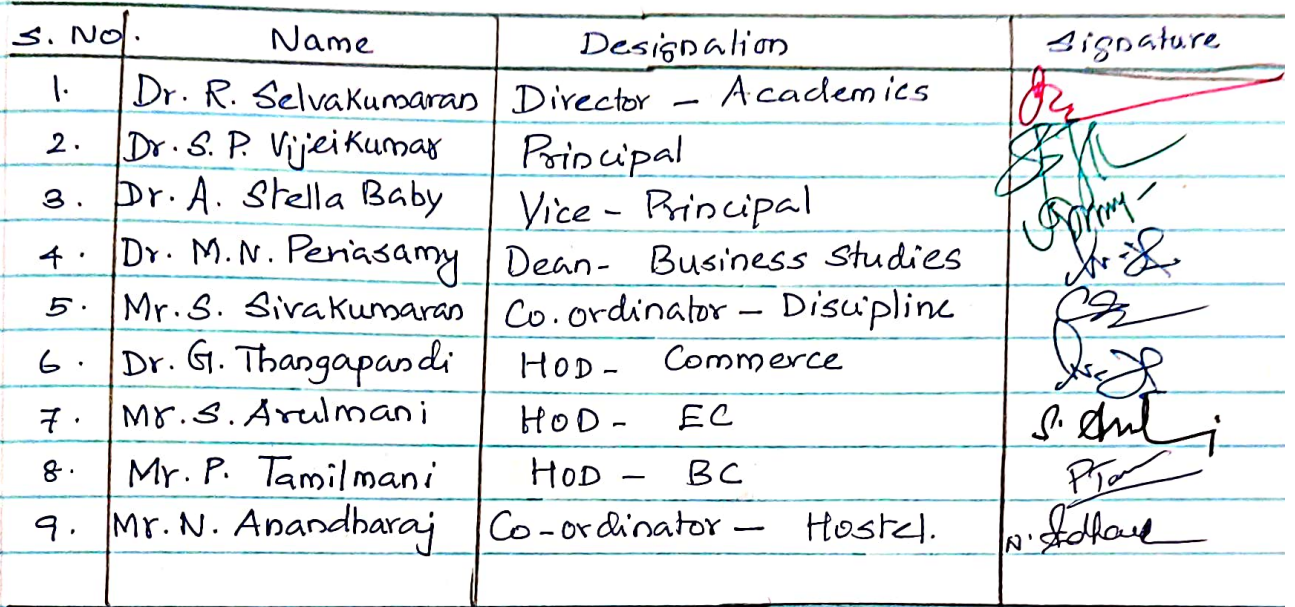 S. No. Name Designation Signature
1. Dr. R. Selvakumaran Director - Academics
2. Dr. S. P. Vijeikumar Principal
3. Dr. A. Stella Baby Vice - Principal
4. Dr. M. N. Periasamy Dean - Business Studies
5. Mr. S. Sivakumaran Co.ordinator - Discipline
6. Dr. G. Thangapandi HOD - Commerce
7. Mr. S. Arulmani HOD - EC
8. Mr. P. Tamilmani HOD - BC
9. Mr. N. Anandharaj Co-ordinator - Hostel.